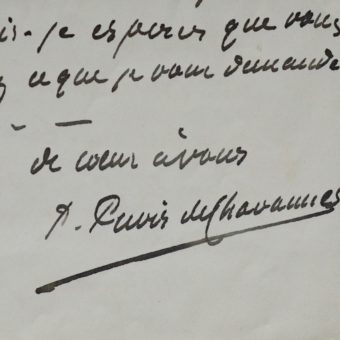 is - je espères que vous
ce que je vous demande
de cœur à vous
P. Puvis de Chavannes